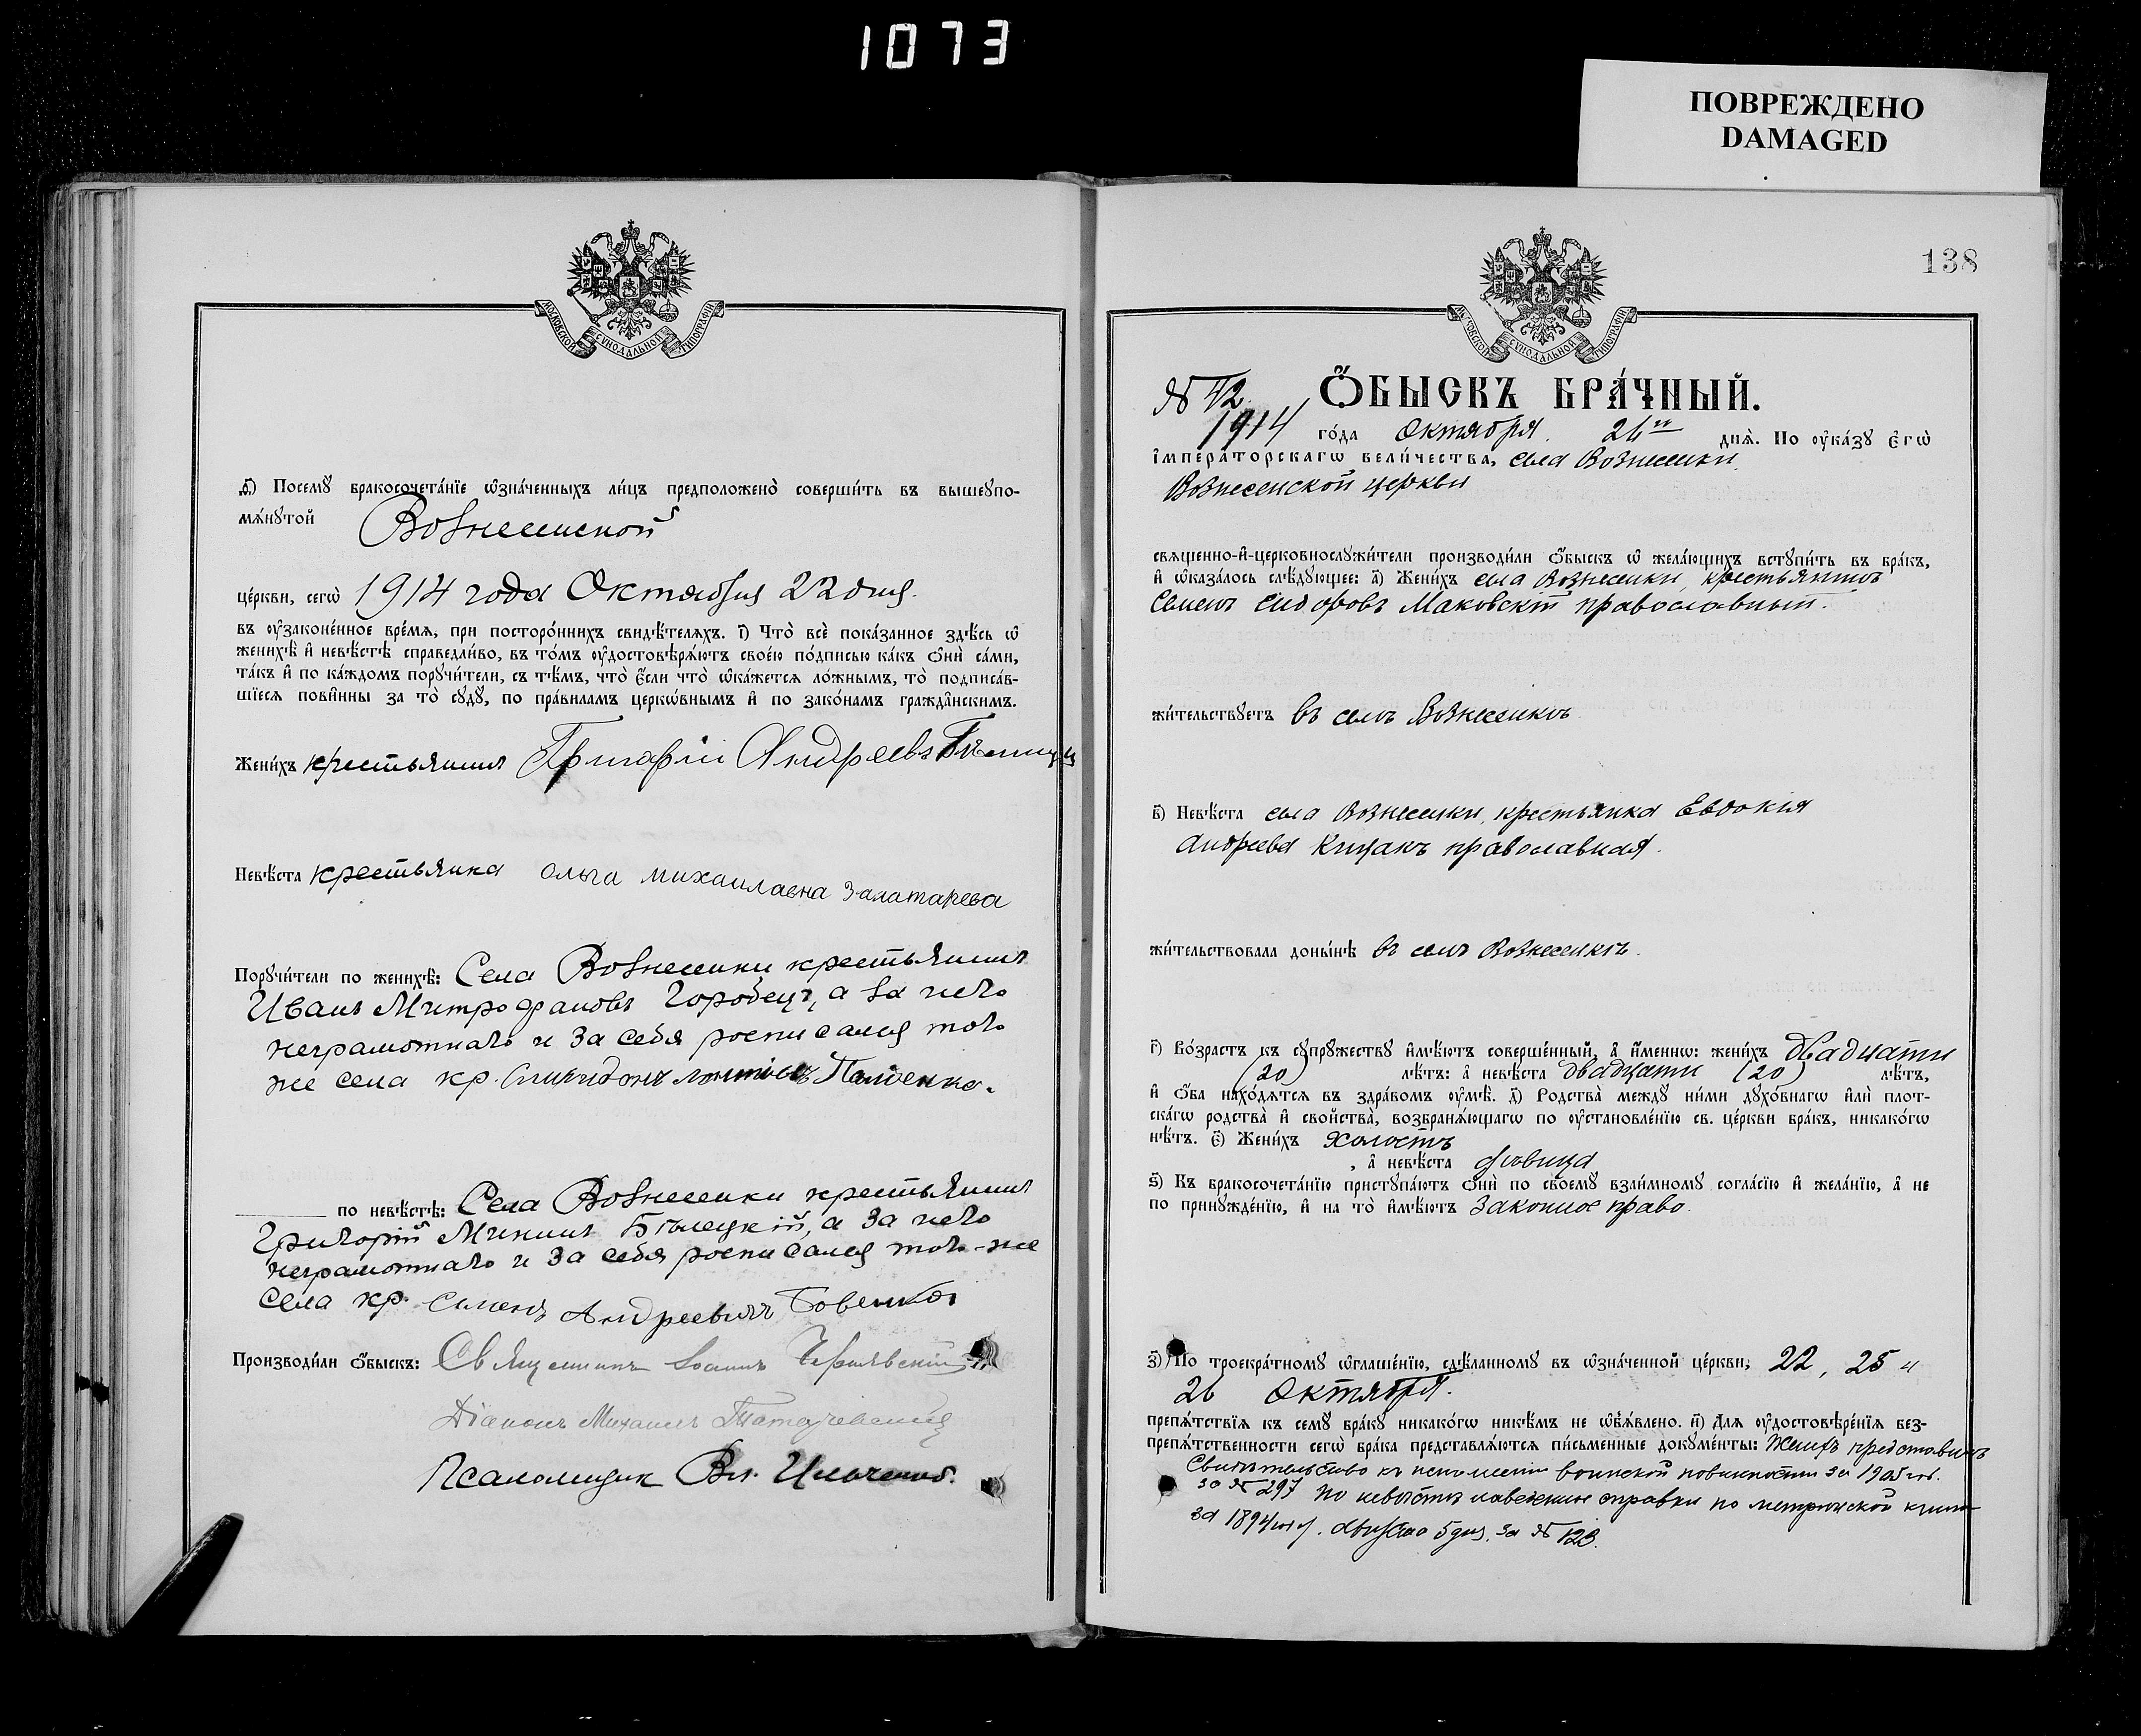 1073
ПОВРЕЖДЕНО
DAMAGED
МОСКОВСКОЙ СѴНОДАЛЬНОЙ ТИПОГРАФІИ
Посемꙋ̀ бракосочета́нїе ѡ҆зна́ченныхъ ли́цъ предположено̀ соверши́ть въ вышеꙋпо-
мѧ́нꙋтой Вознесенской
це́ркви, сегѡ̀ 1914 года Октября 22 дня.
въ ᲂу҆зако́ненное вре́мѧ, при посторо́ннихъ свидѣ́телѧхъ. і҃) Что̀ всѐ пока́занное здѣ́сь ѡ҆
женихѣ̀ и҆ невѣ́стѣ справедли́во, въ то́мъ ᲂу҆достовѣрѧ́ютъ свое́ю по́дписью ка́къ ѻ҆нѝ са́ми,
та́къ и҆ по ка́ждомъ порꙋчи́тели, съ тѣ́мъ, что̀ є҆́сли что̀ ѡ҆ка́жетсѧ ло́жнымъ, то̀ подписа́в-
шїесѧ пови́нны за то̀ сꙋдꙋ̀, по пра́виламъ церко́внымъ и҆ по зако́намъ гражда́нскимъ.
Жени́хъ крестьянинъ Григорій Андреевъ
Невѣ́ста крестьянка ольга михаилавна Залатарева
Порꙋчи́тели по женихѣ̀: Села Вознесенки крестьянинъ
Иванъ Митрофановъ Городецъ, а за него
неграмотнаго и за себя росписался того
же села кр.
по невѣ́стѣ: Села Вознесенки крестьянинъ
Григорій Мининъ Бѣлецкій, а за него
неграмотнаго и за себя росписался того-же
села кр. Семенъ Андреевичъ
Производи́ли ѻ҆́быскъ: Священникъ Іоаннъ Чернявскій
Діаконъ Михаилъ
Псаломщик Вл. Ильченко.
138
МОСКОВСКОЙ СѴНОДАЛЬНОЙ ТИПОГРАФІИ
№ 42. Ѻ҆́БЫСКЪ БРА́ЧНЫЙ.
1914 го́да Октября 26го днѧ̀. По ᲂу҆ка́зꙋ є҆гѡ̀
і҆мпера́торскагѡ вели́чества, села Вознесенки
Вознесенской церкви
свѧщенно-и҆-церковнослꙋжи́тели производи́ли ѻ҆́быскъ ѡ҆ жела́ющихъ встꙋпи́ть въ бра́къ,
и҆ ѡ҆каза́лось слѣ́дꙋющее: а҃) Жени́хъ села Вознесенки, крестьянинъ
Семенъ Сидоровъ Маковскій православный.
жи́тельствꙋетъ въ селѣ Вознесенкѣ
в҃) Невѣ́ста села Вознесенки, крестьянка Евдокія
Андреева Кицакъ православная.
жи́тельствовала доны́нѣ въ селѣ Вознесенкѣ.
г҃) Во́зрастъ къ сꙋпрꙋ́жествꙋ и҆мѣ́ютъ соверше́нный, а҆ и҆́менно: жени́хъ двадцати
(20) лѣ́тъ: а҆ невѣ́ста двадцати (20) лѣ́тъ,
и҆ ѻ҆́ба нахо́дѧтсѧ въ здра́вомъ ᲂу҆мѣ̀. д҃) Родства̀ междꙋ ни́ми дꙋхо́внагѡ и҆лѝ плот-
ска́гѡ родства̀ и҆ свойства̀, возбранѧ́ющагѡ по ᲂу҆становле́нїю св. це́ркви бра́къ, никако́гѡ
нѣ́тъ. є҃) Жени́хъ холостъ
, а҆ невѣ́ста дѣвица
ѕ҃) Къ бракосочета́нїю пристꙋпа́ютъ ѻ҆нѝ по своемꙋ̀ взаи́мномꙋ согла́сїю и҆ жела́нїю, а҆ не
по принꙋжде́нїю, и҆ на то̀ и҆мѣ́ютъ законное право.
з҃) По троекра́тномꙋ ѡ҆глаше́нїю, сдѣ́ланномꙋ въ ѡ҆зна́ченной це́ркви, 22, 25 и
26 Октября.
препѧ́тствїѧ къ семꙋ̀ бра́кꙋ никако́гѡ никѣ́мъ не ѡ҆б̾ѧ́влено. и҃) Для ᲂу҆достовѣре́нїѧ без-
препѧ́тственности сегѡ̀ бра́ка представлѧ́ютсѧ пи́сьменные докꙋме́нты: Женихъ представилъ
Свидѣтельство воинской повинности за
за № 297 по невѣстѣ наведены справки по метрической книгѣ
за 1894 год. Августа 5 дня. за № 123.